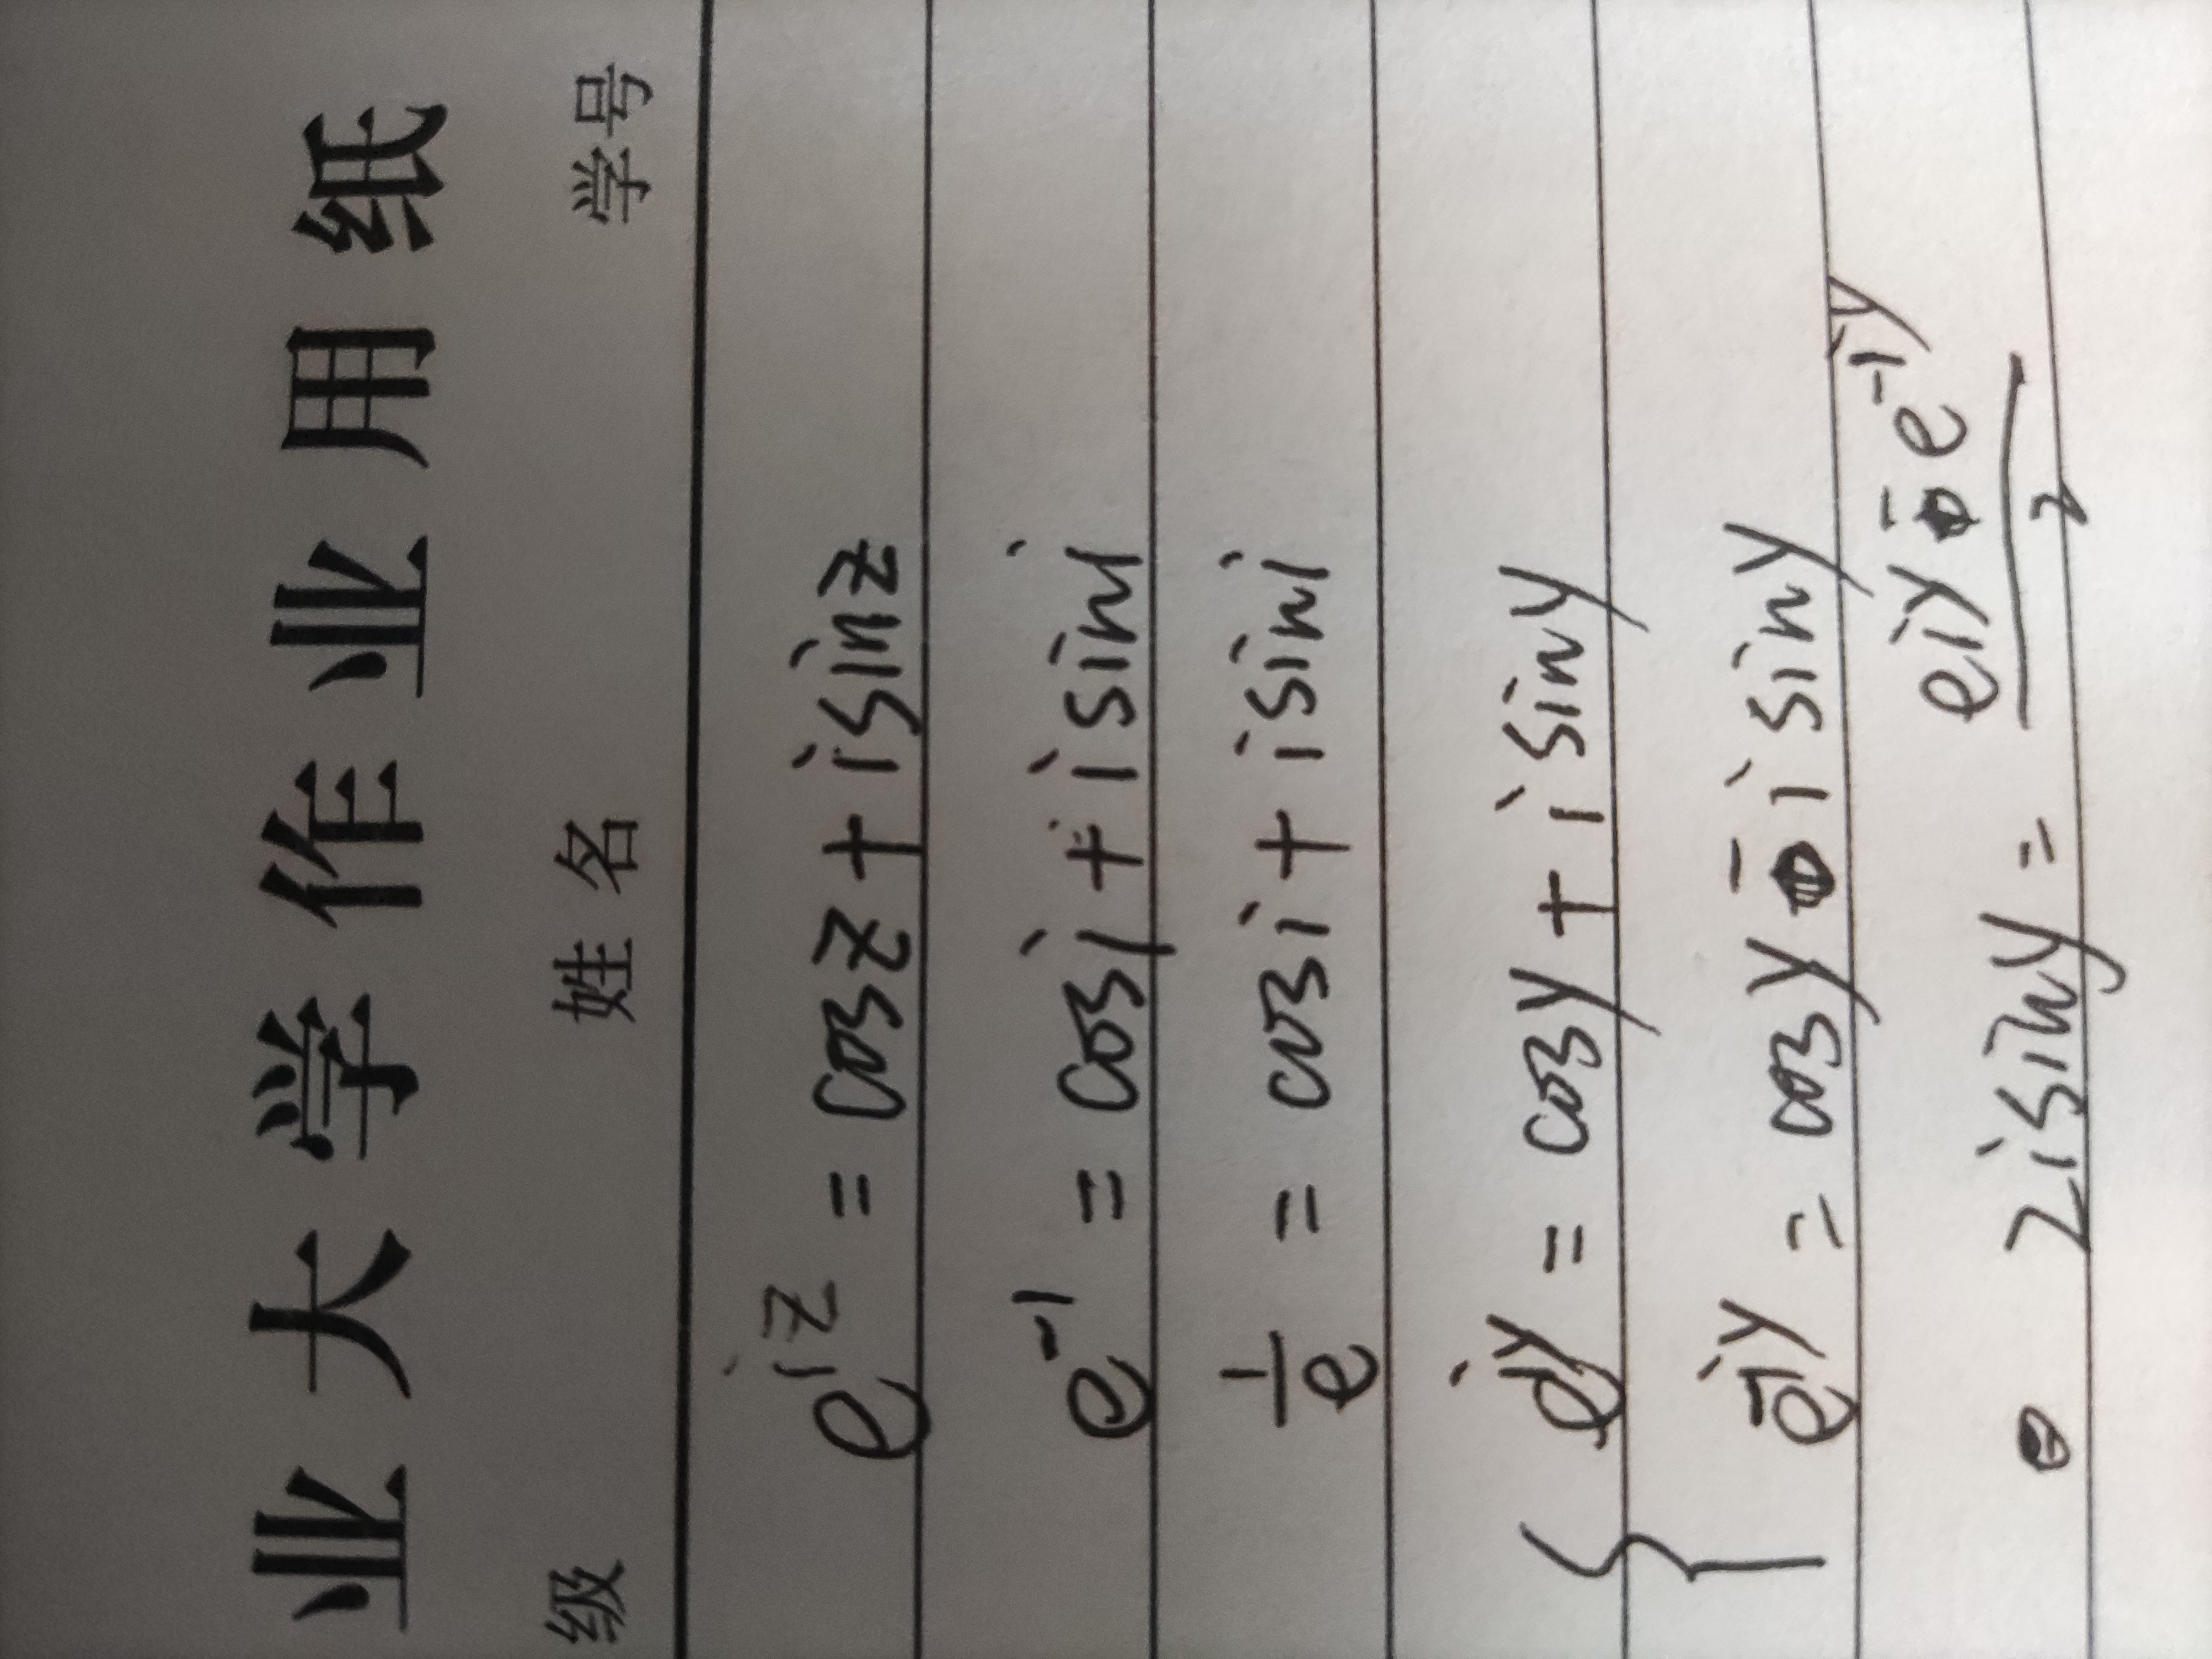 业大学作业用纸
级 姓名 学号
e^{iz} = cosz + isinz
e^{-1} = cosi + isini
1/e = cosi + isini
{ e^{iy} = cosy + isiny
e^{-iy} = cosy - isiny
2isiny = (e^{iy} - e^{-iy})/2